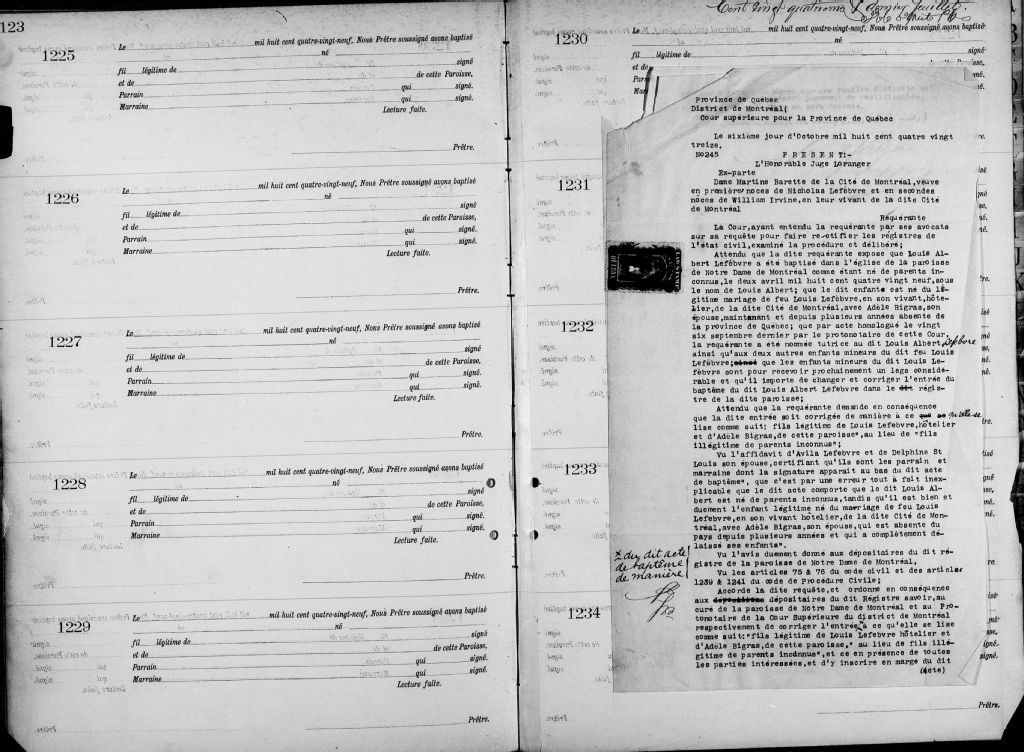 123
1225
Le mil huit cent quatre-vingt-neuf, Nous Prêtre soussigné avons baptisé
né
signé
fil légitime de de cette Paroisse,
et de qui signé.
Parrain qui signé.
Marraine Lecture faite.
Prêtre.
1226
Le mil huit cent quatre-vingt-neuf, Nous Prêtre soussigné avons baptisé
né
signé
fil légitime de de cette Paroisse,
et de qui signé.
Parrain qui signé.
Marraine Lecture faite.
Prêtre.
1227
Le mil huit cent quatre-vingt-neuf, Nous Prêtre soussigné avons baptisé
né
signé
fil légitime de de cette Paroisse,
et de qui signé.
Parrain qui signé.
Marraine Lecture faite.
Prêtre.
1228
Le mil huit cent quatre-vingt-neuf, Nous Prêtre soussigné avons baptisé
né
signé
fil légitime de de cette Paroisse,
et de qui signé.
Parrain qui signé.
Marraine Lecture faite.
Prêtre.
1229
Le mil huit cent quatre-vingt-neuf, Nous Prêtre soussigné avons baptisé
né
signé
fil légitime de de cette Paroisse,
et de qui signé.
Parrain qui signé.
Marraine Lecture faite.
Prêtre.
Cent vingt quatrième & dernier feuillet.
1230
Le mil huit cent quatre-vingt-neuf, Nous Prêtre soussigné avons baptisé
né
signé
fil légitime de
et de
Province de Québec
District de Montréal(
Cour supérieure pour la Province de Québec
Le sixième jour d'Octobre mil huit cent quatre vingt
treize.
No245 PRESENT:-
L'Honorable Juge Loranger
Ex-parte
Dame Martine Barette de la Cité de Montréal, veuve
en première noces de Nicholas Lefèbvre et en secondes
noces de William Irvine, en leur vivant de la dite Cité
de Montréal
Requérante
La Cour, ayant entendu la requérante par ses avocats
sur sa requête pour faire rectifier les régistres de
l'état civil, examiné la procédure et délibéré;
Attendu que la dite requérante expose que Louis Al-
bert Lefèbvre a été baptisé dans l'église de la paroisse
de Notre Dame de Montréal comme étant né de parents in-
connus, le deux avril mil huit cent quatre vingt neuf, sous
le nom de Louis Albert; que le dit enfant est né du lé-
gitime mariage de feu Louis Lefèbvre, en son vivant, hôte-
lier, de la dite Cité de Montréal, avec Adèle Bigras, son
épouse, maintenant et depuis plusieurs années absente de
la province de Québec; que par acte homologué le vingt
six septembre dernier par le protonotaire de cette Cour,
la requérante a été nommée tutrice au dit Louis Albert Lefebvre
ainsi qu'aux deux autres enfants mineurs du dit feu Louis
Lefèbvre; que les enfants mineurs du dit Louis Le-
fèbvre sont pour recevoir prochainement un legs considé-
rable et qu'il importe de changer et corriger l'entrée du
baptême du dit Louis Albert Lefebvre dans le dit régis-
tre de la dite paroisse;
Attendu que la requérante demande en conséquence
que la dite entrée soit corrigée de manière à ce que se qu'elle se
lise comme suit: fils légitime de Louis Lefebvre, hôtelier
et d'Adèle Bigras, de cette paroisse", au lieu de "fils
illégitime de parents inconnus";
Vu l'affidavit d'Avila Lefebvre et de Delphine St
Louis son épouse, certifiant qu'ils sont les parrain et
marraine dont la signature apparait au bas du dit acte
de baptême", que c'est par une erreur tout à fait inex-
plicable que le dit acte comporte que le dit Louis Al-
bert est né de parents inconnus, tandis qu'il est bien et
duement l'enfant légitime né du marriage de feu Louis
Lefebvre, en son vivant hôtelier, de la dite Cité de Mon-
tréal, avec Adèle Bigras, son épouse, qui est absente du
pays depuis plusieurs années et qui a complètement dé-
laissé ses enfants".
Vu l'avis duement donné aux dépositaires du dit ré-
gistre de la paroisse de Notre Dame de Montréal,
Vu les articles 75 & 76 du code civil et des articles
1239 & 1241 du code de Procédure Civile;
Accorde la dite requête, et ordonne en conséquence
aux dépositaires du dit Régistre savoir, au
curé de la paroisse de Notre Dame de Montréal et au Pro-
tonotaire de la Cour Supérieure du district de Montréal
respectivement de corriger l'entrée à ce qu'elle se lise
comme suit: "fils légitime de Louis Lefebvre hôtelier et
d'Adèle Bigras, de cette paroisse," au lieu de "fils illé-
gitime de parents inconnus", et ce en présence de toutes
les parties intéressées, et d'y inscrire en marge du dit
(Acte)
du dit acte
de baptême
de manière
1231
1232
1233
1234
Prêtre.